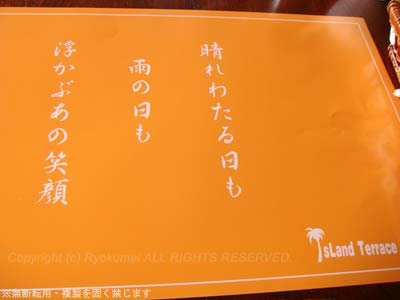 晴れわたる日も
雨の日も
浮かぶあの笑顔
IsLand Terrace
Copyright (c) Ryokumei ALL RIGHTS RESERVED.
※無断転用・複製を固く禁じます